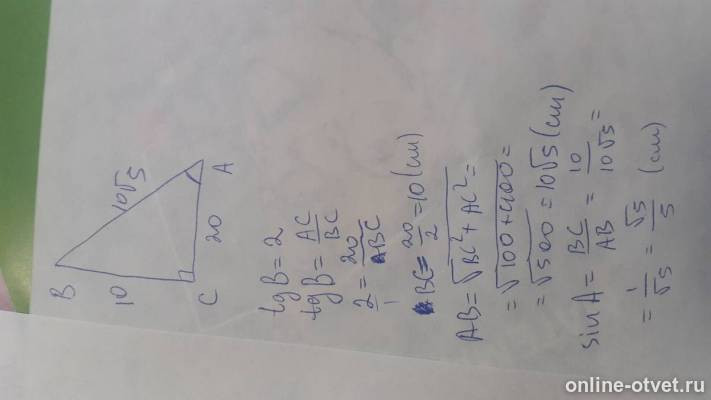 B
10
10√5
C
20
A
tg B = 2
tg B = AC/BC
2/1 = 20/BC
BC = 20/2 = 10 (см)
AB = √BC² + AC² =
= √100 + 400 =
= √500 = 10√5 (см)
sin A = BC/AB = 10/10√5 =
= 1/√5 = √5/5 (см)
online-otvet.ru